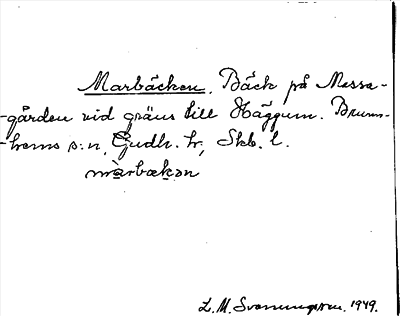 Marbäcken. Bäck på Massa-
-gården vid gräns till Häggum. Brunn-
-hems s:n, Gudh. hr, Skb. l.
màrbækən
L. M. Svanungson. 1949.